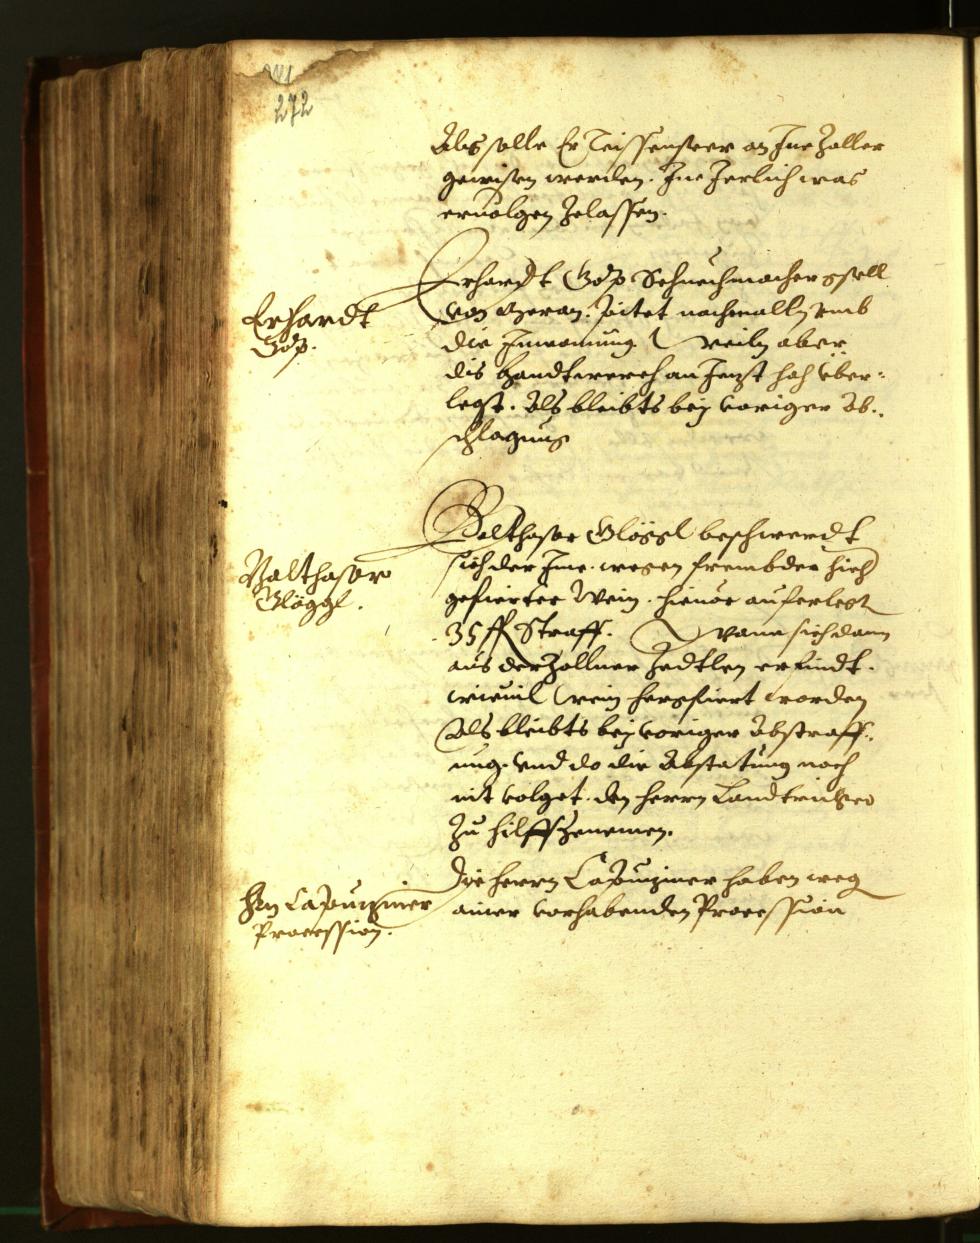 272
Als solle Er Teissenseer an Ine Zaller
gewisen werden. Ine Jerlich was
ervolgen Zelassen.
Erhardt
Erhardt Schuechmacher gsell
von Meran. pitet nochmalln vmb
die Inwonung. Weiln aber
dis Handtwerch an Jezt hoch vber-
legt. Als bleibts bey voriger Ab-
schlagung
Balthasar
Glöggl.
Balthasar Glöggl beschwerdt
sich der Ime. wegen frembder hieh
gefierter Wein. hieuor auferlegt
35 fl Straff. Wann sich dann
aus der Zollner Zedtlen erfindt.
wieuil Wein hergfiert worden
Als bleibts bey voriger Abstraff-
ung. Vnd do die Abstatung noch
nit volget. den herrn Landtrichter
Zu hilff Zenemen.
Hrn Capuziner
Procession.
Die herrn Capuziner haben weg
ainer vorhabenden Procession